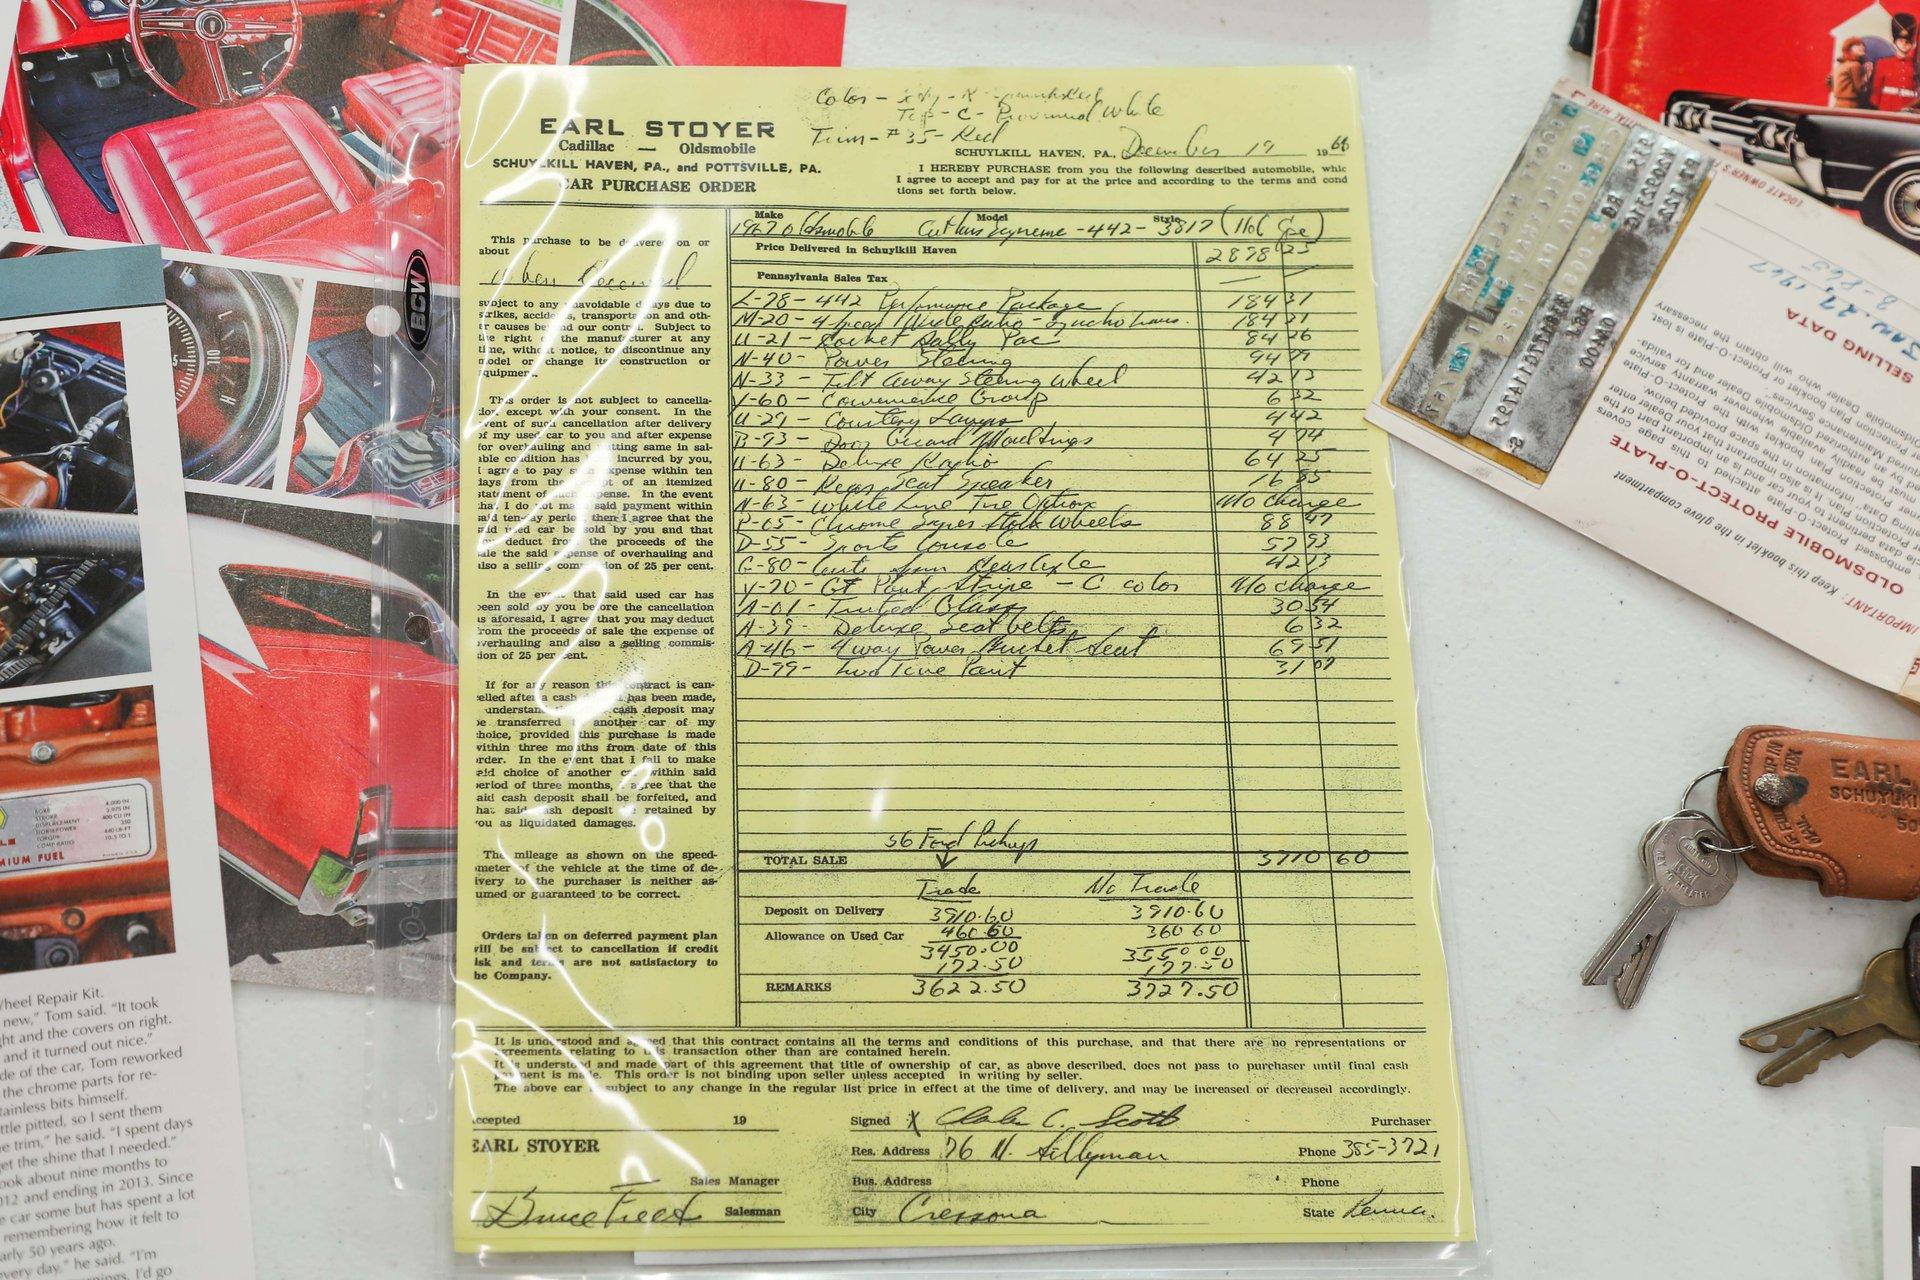 Color -
Top - C - Provincial White
Trim - #35 - Red
EARL STOYER
Cadillac — Oldsmobile
SCHUYLKILL HAVEN, PA., and POTTSVILLE, PA.
CAR PURCHASE ORDER
SCHUYLKILL HAVEN, PA., December 19 1966
I HEREBY PURCHASE from you the following described automobile, whic
I agree to accept and pay for at the price and according to the terms and cond
tions set forth below.
Make Model Style
1967 Oldsmobile Cutlass Supreme - 442 - 3817 (Hol Cpe)
Price Delivered in Schuylkill Haven 2878 25
Pennsylvania Sales Tax —
L-78 - 442 Performance Package 184 31
M-20 - 4 speed Wide Ratio - 184 31
U-21 - Rocket Rally Pac 84 26
N-40 - Power Steering 94 79
N-33 - Tilt Away Steering Wheel 42 13
Y-60 - Convenience Group 6 32
U-29 - Courtesy Lamps 4 42
B-93 - Door Guard Mouldings 4 74
U-63 - Deluxe Radio 64 25
U-80 - Rear Seat Speaker 16 85
N-63 - White Line Tire Option No charge
P-05 - Chrome Super Stock Wheels 88 47
D-55 - Sports Console 57 93
G-80 - Anti spin Rear axle 42 13
Y-70 - GT Paint Stripe - C color No charge
A-01 - Tinted Glass 30 54
A-39 - Deluxe Seat belts 6 32
A-46 - 4 way Power Bucket Seat 69 51
D-99 - Two Tone Paint 31 07
56 Ford Pickup
TOTAL SALE 3910 60
Trade No Trade
Deposit on Delivery 3910.60 3910.60
Allowance on Used Car 460.60 360 60
3450.00 3550 00
172.50 177.50
REMARKS 3622.50 3727.50
This purchase to be delivered on or
about
When Received
subject to any unavoidable delays due to
strikes, accidents, transportation and oth-
er causes beyond our control. Subject to
the right of the manufacturer at any
time, without notice, to discontinue any
model or change its construction or
equipment.
This order is not subject to cancella-
tion except with your consent. In the
event of such cancellation after delivery
of my used car to you and after expense
for overhauling and putting same in sal-
able condition has been incurred by you,
I agree to pay such expense within ten
days from the receipt of an itemized
statement of such expense. In the event
that I do not make said payment within
said ten-day period, then I agree that the
said used car be sold by you and that
you deduct from the proceeds of the
sale the said expense of overhauling and
also a selling commission of 25 per cent.
In the event that said used car has
been sold by you before the cancellation
as aforesaid, I agree that you may deduct
from the proceeds of sale the expense of
overhauling and also a selling commis-
sion of 25 per cent.
If for any reason this contract is can-
celled after a cash deposit has been made,
I understand the cash deposit may
be transferred to another car of my
choice, provided this purchase is made
within three months from date of this
order. In the event that I fail to make
said choice of another car within said
period of three months, I agree that the
said cash deposit shall be forfeited, and
that said cash deposit be retained by
you as liquidated damages.
The mileage as shown on the speed-
ometer of the vehicle at the time of de-
livery to the purchaser is neither as-
sumed or guaranteed to be correct.
Orders taken on deferred payment plan
will be subject to cancellation if credit
risk and terms are not satisfactory to
the Company.
It is understood and agreed that this contract contains all the terms and conditions of this purchase, and that there are no representations or
agreements relating to this transaction other than are contained herein.
It is understood and made part of this agreement that title of ownership of car, as above described, does not pass to purchaser until final cash
payment is made. This order is not binding upon seller unless accepted in writing by seller.
The above car is subject to any change in the regular list price in effect at the time of delivery, and may be increased or decreased accordingly.
Accepted 19
EARL STOYER
Sales Manager
Bruce Freed Salesman
Signed X C. Scott Purchaser
Res. Address 76 N. Sillyman Phone 385-3721
Bus. Address Phone
City Cressona State Penna.
BCW
PREMIUM FUEL
Wheel Repair Kit.
new," Tom said. "It took
ght and the covers on right.
and it turned out nice."
de of the car, Tom reworked
the chrome parts for re-
tainless bits himself.
ttle pitted, so I sent them
e trim," he said. "I spent days
get the shine that I needed."
ook about nine months to
012 and ending in 2013. Since
e car some but has spent a lot
remembering how it felt to
early 50 years ago.
every day," he said. "I'm
OLDSMOBILE PROTECT-O-PLATE
IMPORTANT: Keep this booklet in the glove compartment
SELLING DATA
Jan. 27, 1967
EARL
SCHUYLKI
DROP IN
MAIL BOX